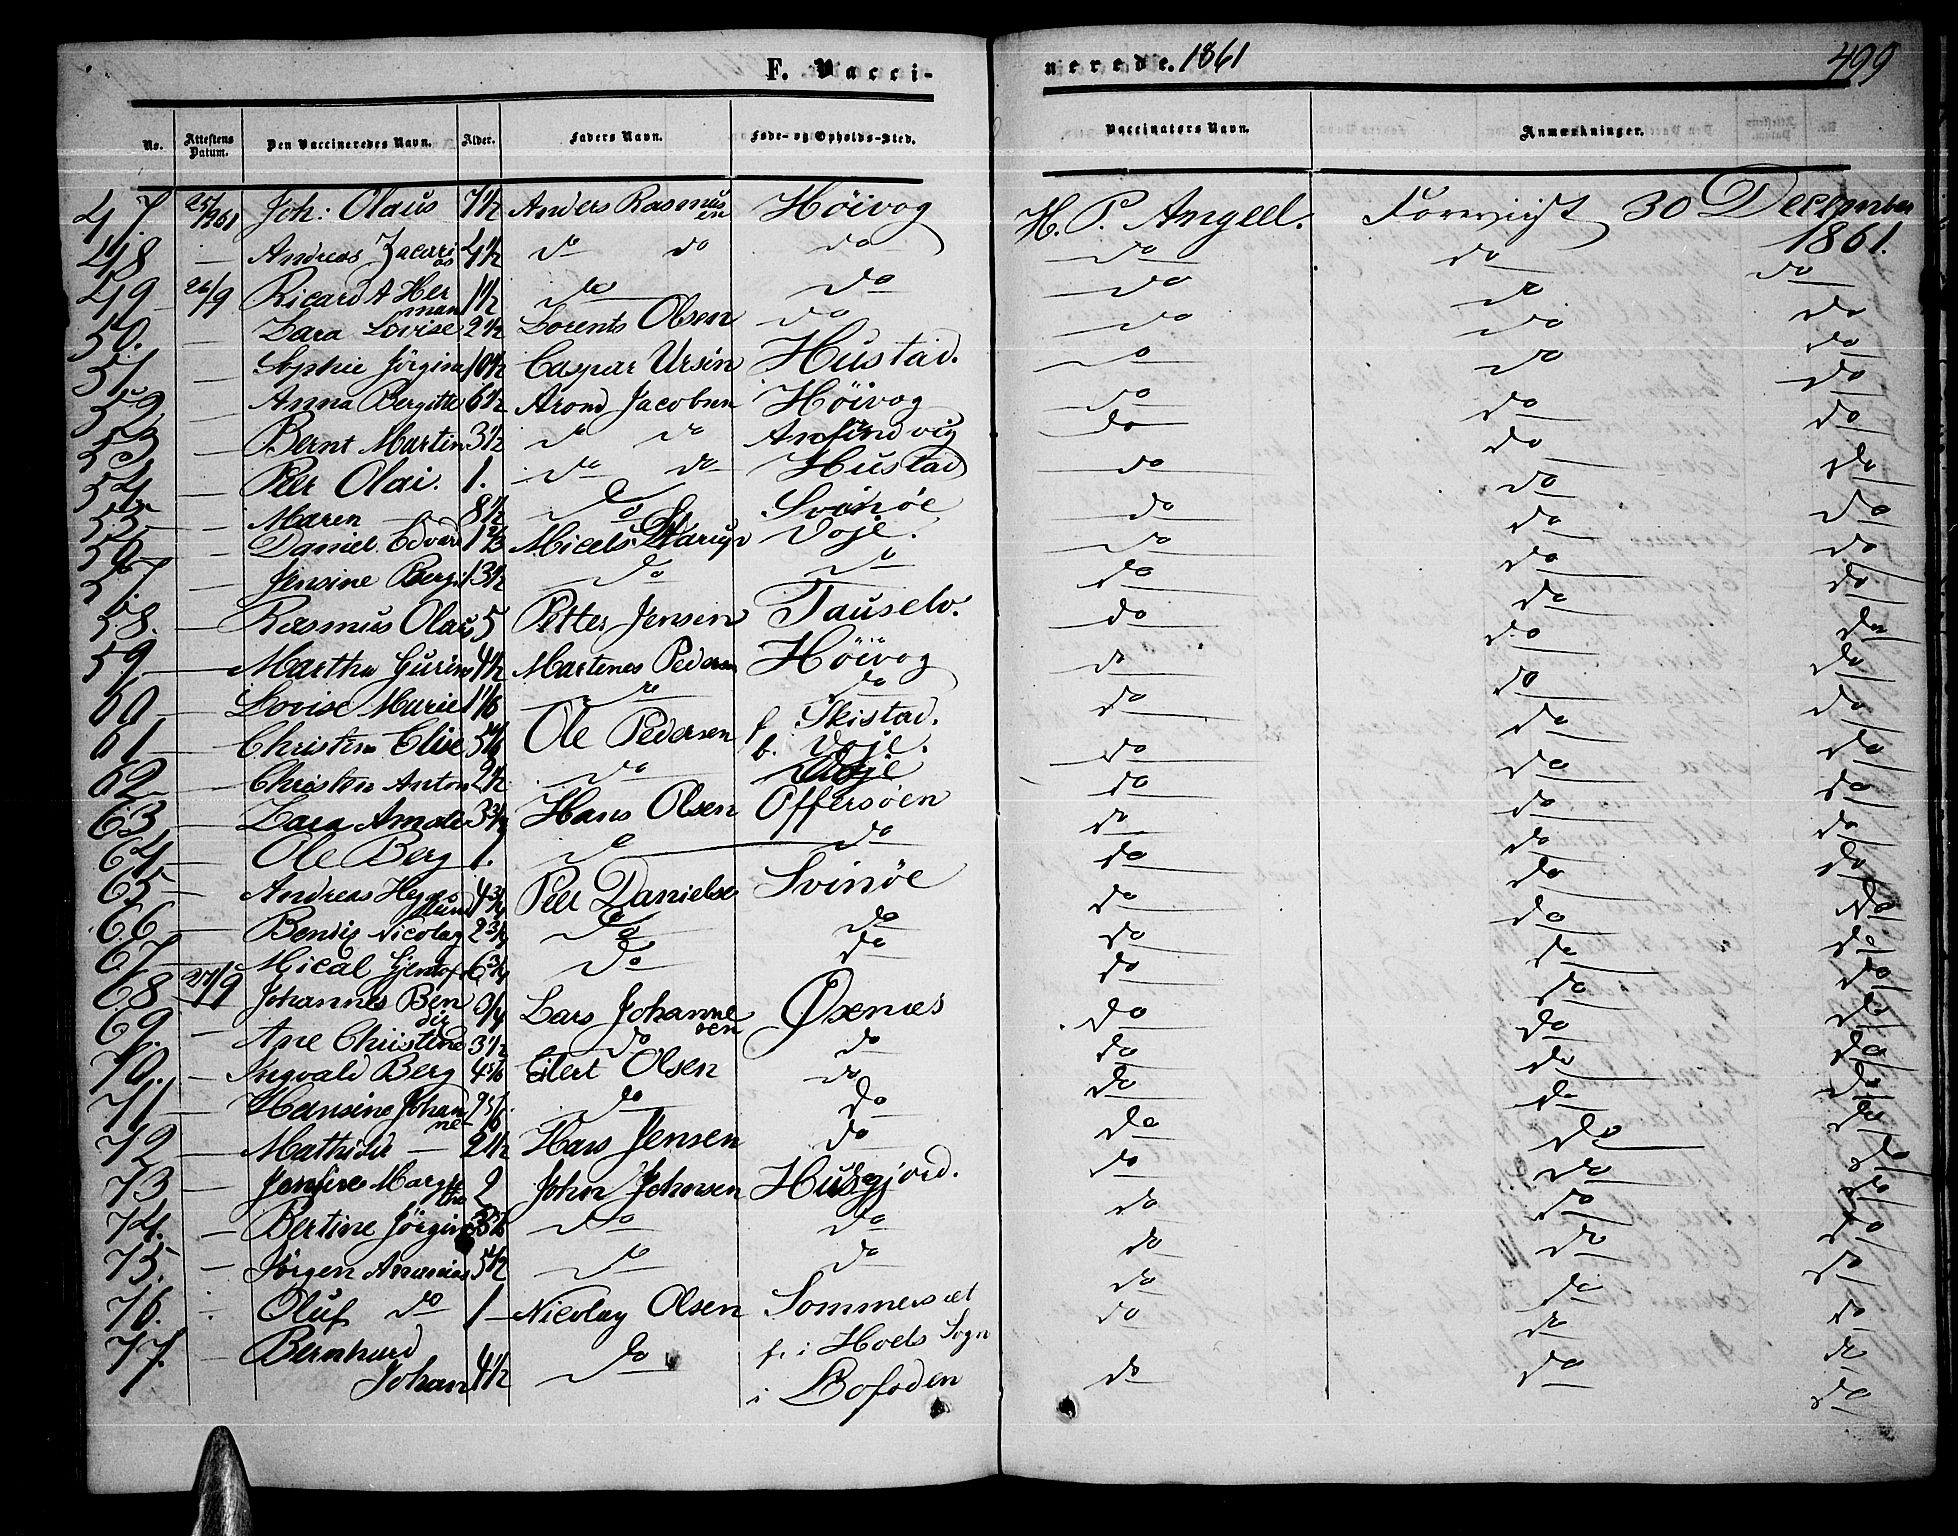 F. Vacci-
nerede. 1861
499
No. Attestens Datum. Den Vaccineredes Navn. Alder. Faders Navn. Føde- og Opholds-Sted. Vaccinators Navn. Anmærkninger.
47. 25/9 61 Joh: Olaus 7 1/2 Anders Rasmussen Höivog H. P. Angell. Forevigt 30 December 1861.
48 — Andreas Zacarias 4 1/2 do do do do do do
49 26/9 Ricard A Herman 1 1/2 do do do do do
50. — Lara Lovise 2 1/2 Lorents Olsen do do do do
51. — Sophie Jörgine 10 1/2 Caspar Ursin Hustad. do do do
52 — Anna Bergitte 6 1/2 Arond Jacobsen Höivog do do do
53 — Bernt Martin 3 1/2 do do Anfindvig do do do
54. — Peer Olai. 1. do do Hustad do do do
55 — Maren — 8 1/2 do Svinöe do do do
56 — Daniel Edvard 1 2/3 Micels Voje. do do do
57. — Jensine Bergi 13 1/2 do do do do do
58. — Rasmus Olaus 5 Petter Jensen Tauselv. do do do
59 — Martha Gurine 4 1/2 Martenes Pedersen Höivog do do do
60 — Lovise Marie 1 1/6 do do do do do
61 — Christian Elise Ole Pedersen f. Skistad. b. Voje. do do do
62 — Christen Anton 2 1/2 do Voje do do do
63 — Lara Amalie 3 3/4 Hans Olsen Offersöen do do do
64 — Ole Berg 1. do do do do do
65 — Andreas 4 3/4 Peer Danielse Svinöe do do do
66 — Bendix Nicolay 2 3/4 do do do do do
67 — Mical 6 3/4 do do do do do
68 27/9 Johannes Bendix 3/4 Lars Johannesen Øxenæs do do do
69. — Ane Christine 3 1/2 do do do do do
70. — Ingvald Berg 4 5/6 Eilert Olsen do do do do
71 — Hansine Johanne do do do do do
72 — Mathilde — 2 1/2 Hans Jensen do do do do
73 — Jensine Margretha 2 John Johnsen do do do
74. — Bertine Jörgine do do do do do
75. — Jörgen Ananias 5 1/2 do do do do do
76. — Oluf do 1 — Nicolay Olsen Sommersæt do do do
77. — Bernhard Johan 4 1/2 do f. i Hoels Sogn i Lofoden do do do